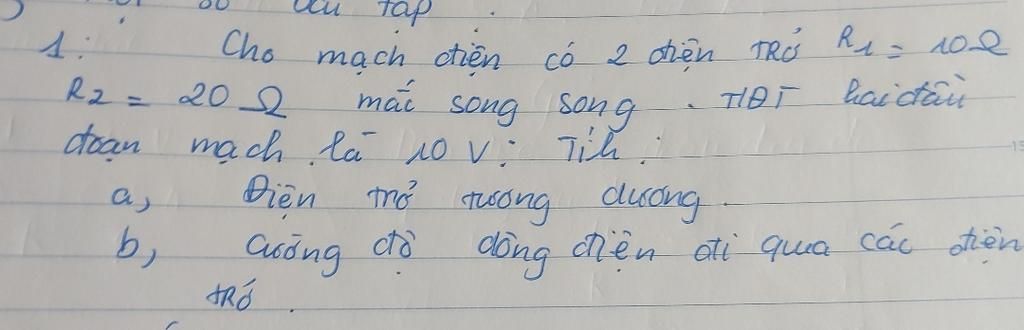 tập
1: Cho mạch điện có 2 điện TRỞ R1 = 10Ω
R2 = 20 Ω mắc song song. HĐT hai đầu
đoạn mạch là 10 V: Tíh:
a, Điện trở tương dương.
b, Cường độ dòng điện đi qua các điện
TRở.